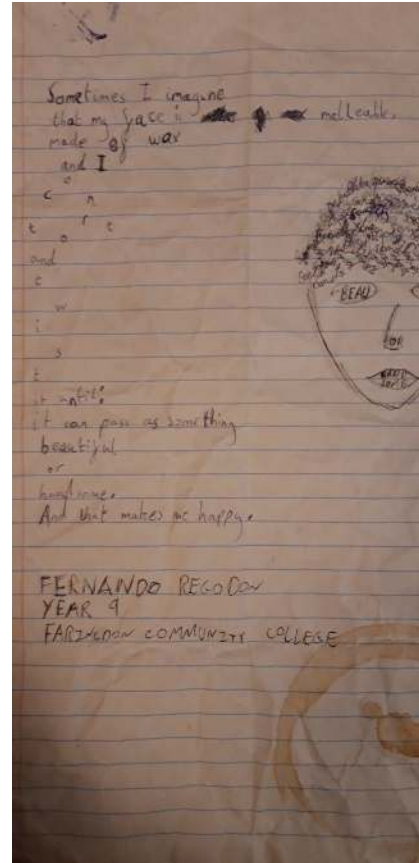 Sometimes I imagine
that my face is melleable,
made of wax
and I
o
c n
t o r t
and
t
w
i
s
t
it until
it can pass as something
beautiful
or
handsome.
And that makes me happy.
BEAU
OR
FERNANDO REGODON
YEAR 9
FARINGDON COMMUNITY COLLEGE